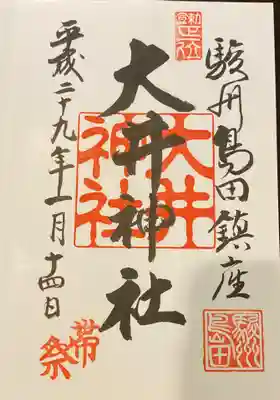 駿州島田鎮座
大井神社
大井神社
平成二十九年一月十四日
帯祭
駿州島田